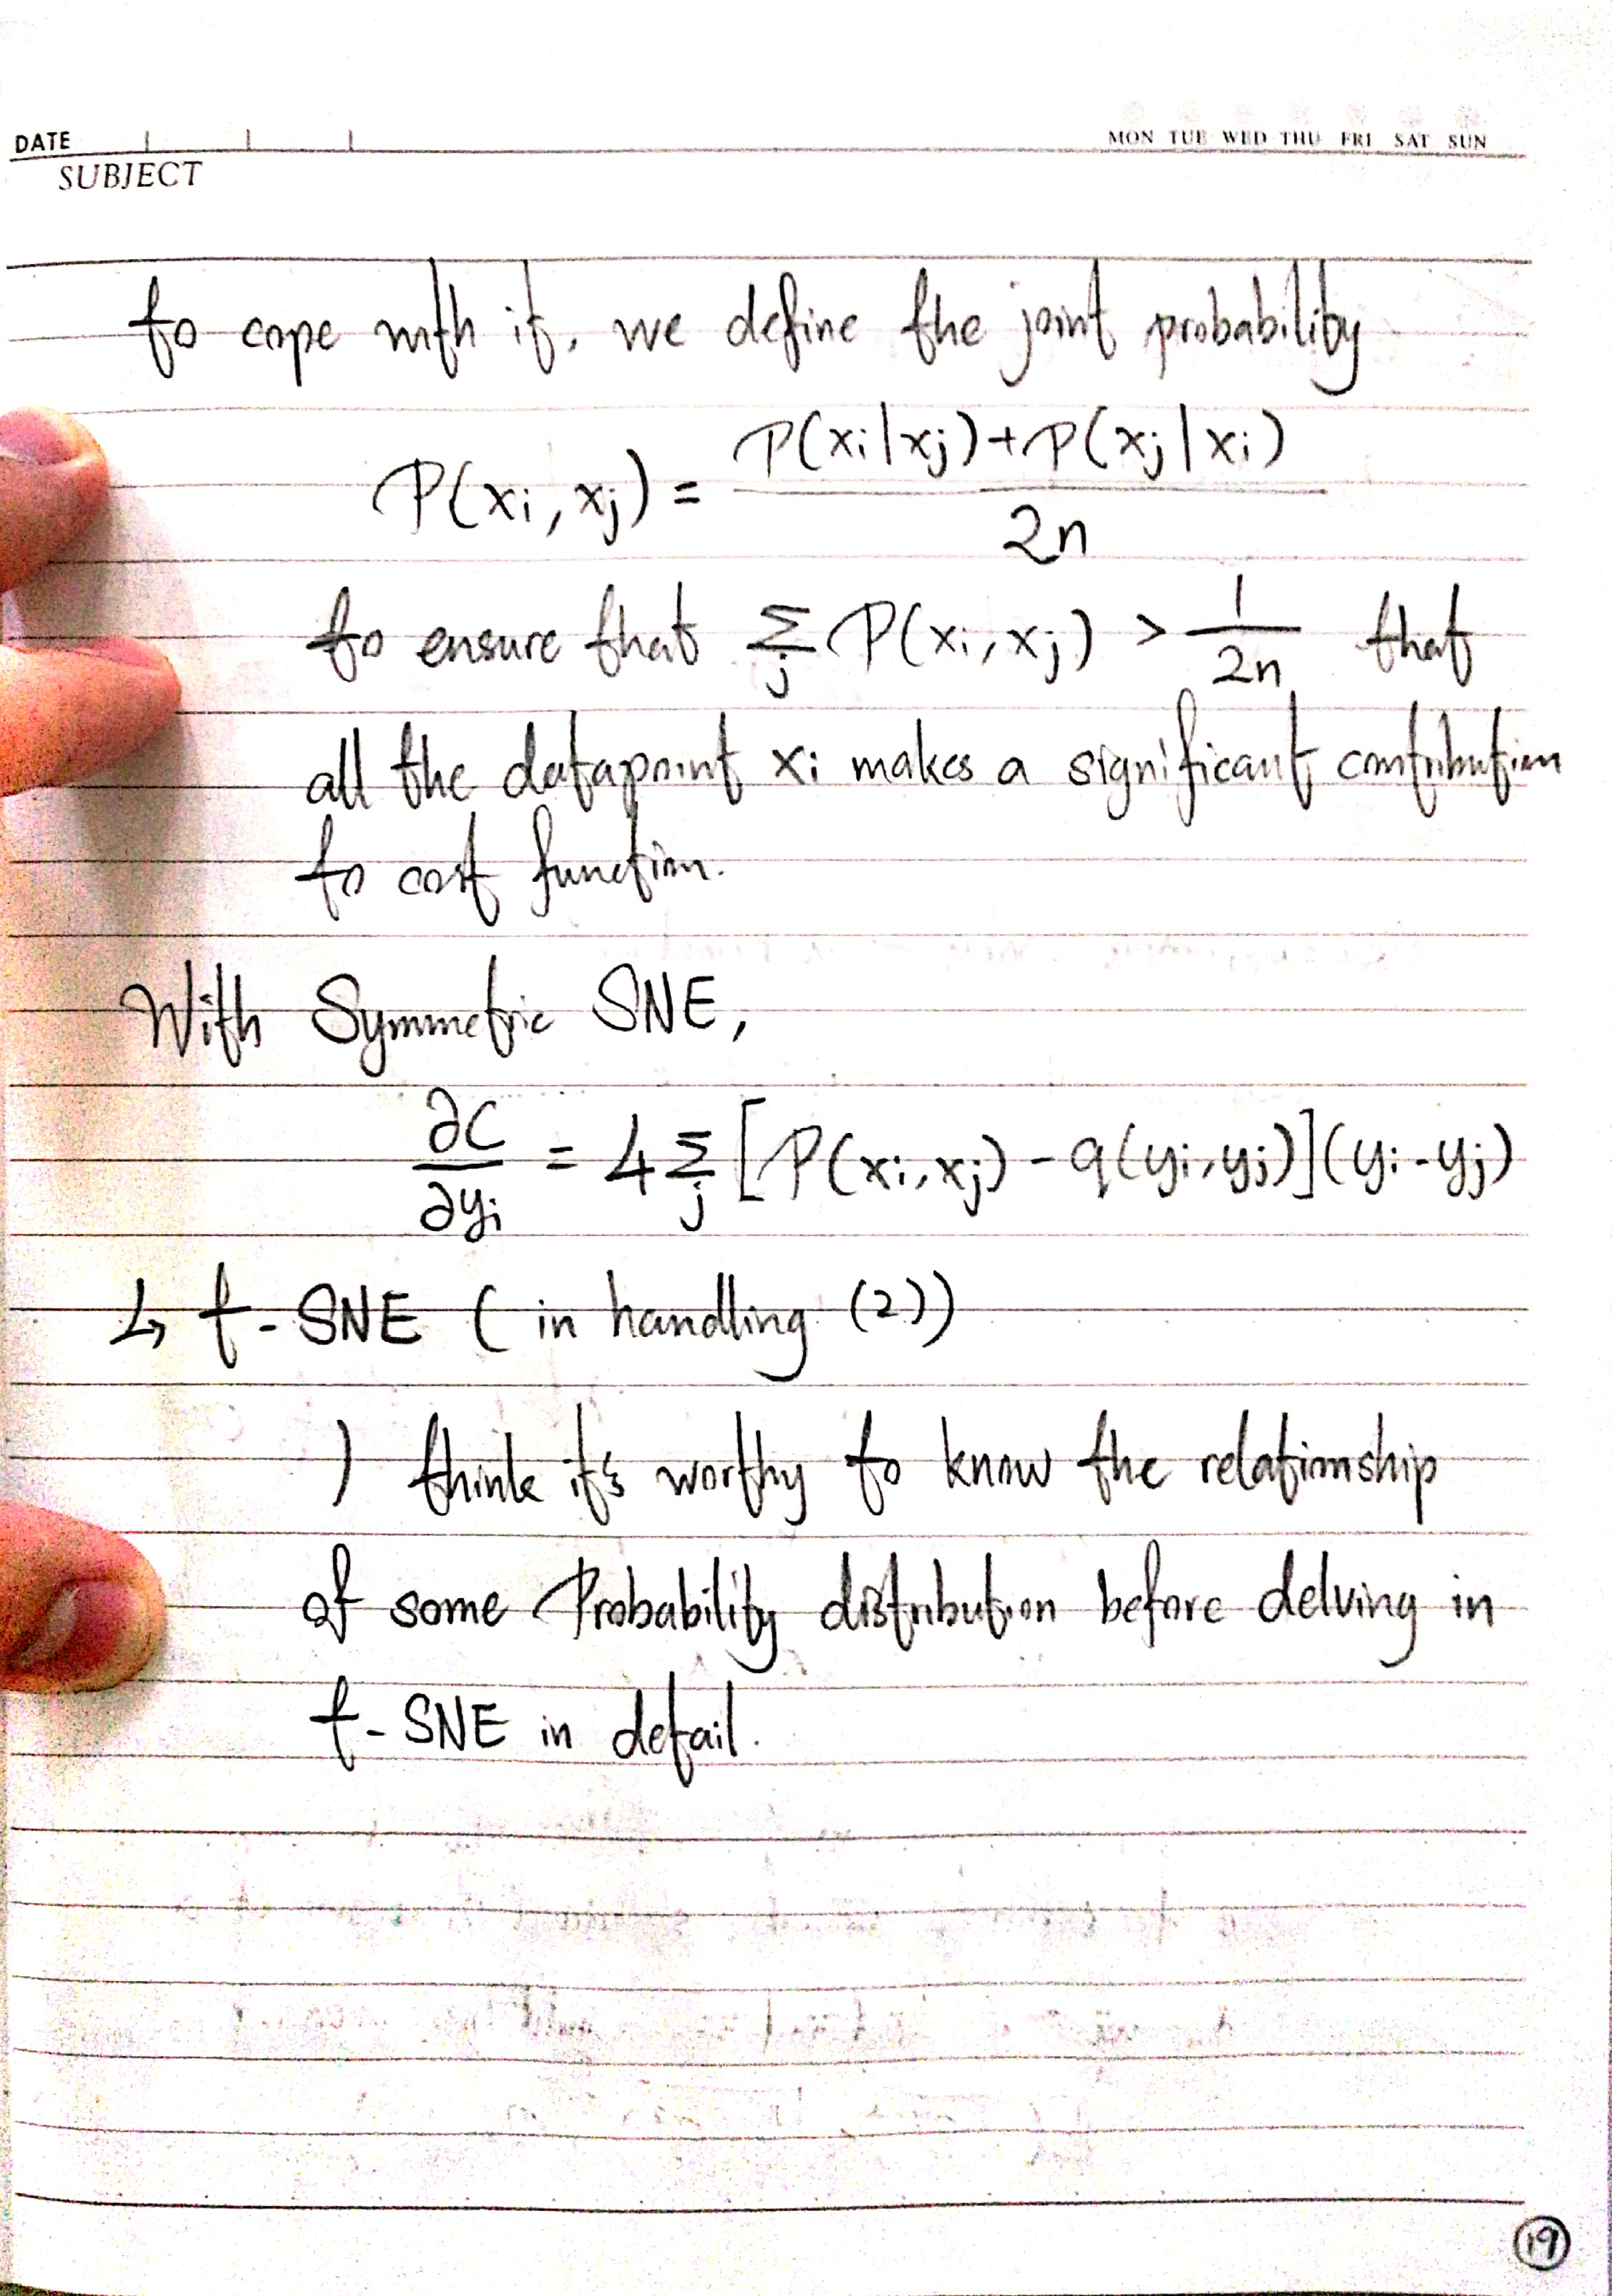 DATE
MON TUE WED THU FRI SAT SUN
SUBJECT
to cope with it, we define the joint probability
P(xi, xj) = P(xi|xj)+P(xj|xi) / 2n
to ensure that Σj P(xi, xj) > 1/2n that
all the datapoint xi makes a significant contribution
to cost function.
With Symmetric SNE,
∂C/∂yi = 4Σj [P(xi, xj) - q(yi, yj)](yi - yj)
↳ t-SNE (in handling (2))
I think it's worthy to know the relationship
of some Probability distribution before delving in
t-SNE in detail.
19